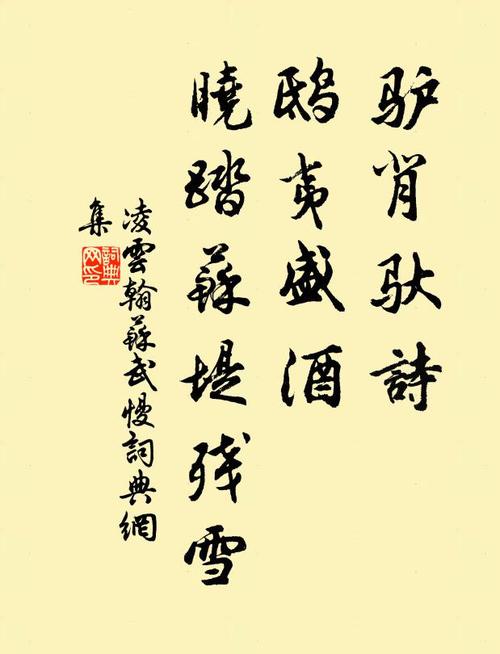 驴肖馱詩
鸱夷盛酒
曉踏蘇堤残雪
凌雲翰蘇武慢詞典網
集
詞典网印